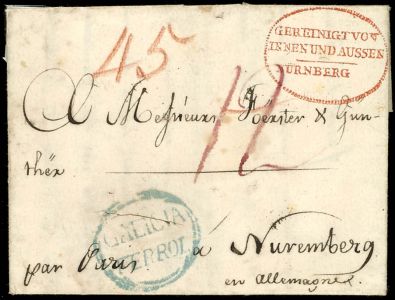 45
GEREINIGT VON
INNEN UND AUSSEN
NÜRNBERG
A Messieurs Förster & Gun-
thër
12
GALICIA
FERROL
par Paris à Nuremberg
en Allemagne